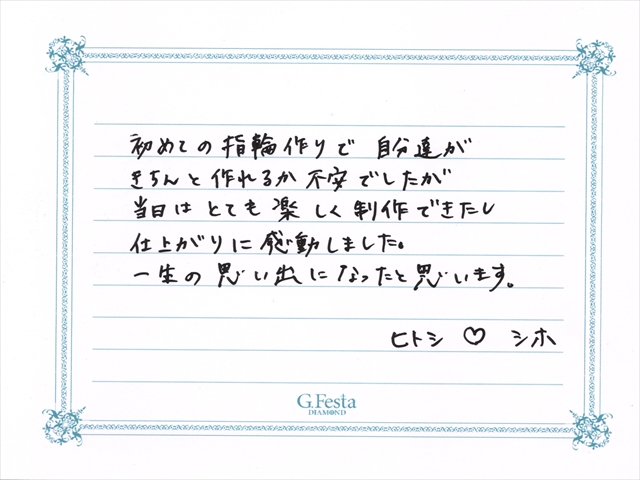 初めての指輪作りで 自分達が
きちんと作れるか不安でしたが
当日はとても楽しく制作できたし
仕上がりに感動しました。
一生の思い出になったと思います。
ヒトシ ♡ シホ
G.Festa
DIAMOND